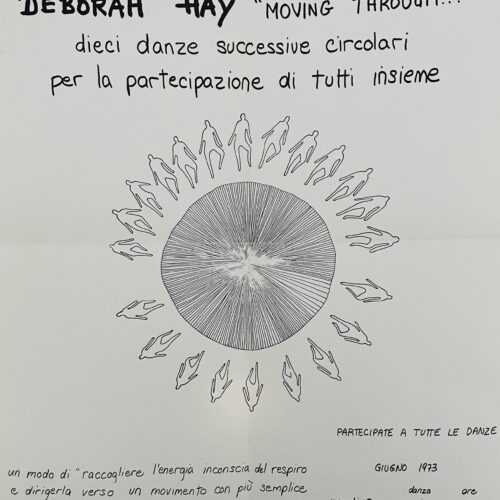 DEBORAH HAY "MOVING THROUGH...
dieci danze successive circolari
per la partecipazione di tutti insieme
PARTECIPATE A TUTTE LE DANZE
un modo di "raccogliere l'energia inconscia del respiro
e dirigerla verso un movimento con più semplice
GIUGNO 1973
danza ore